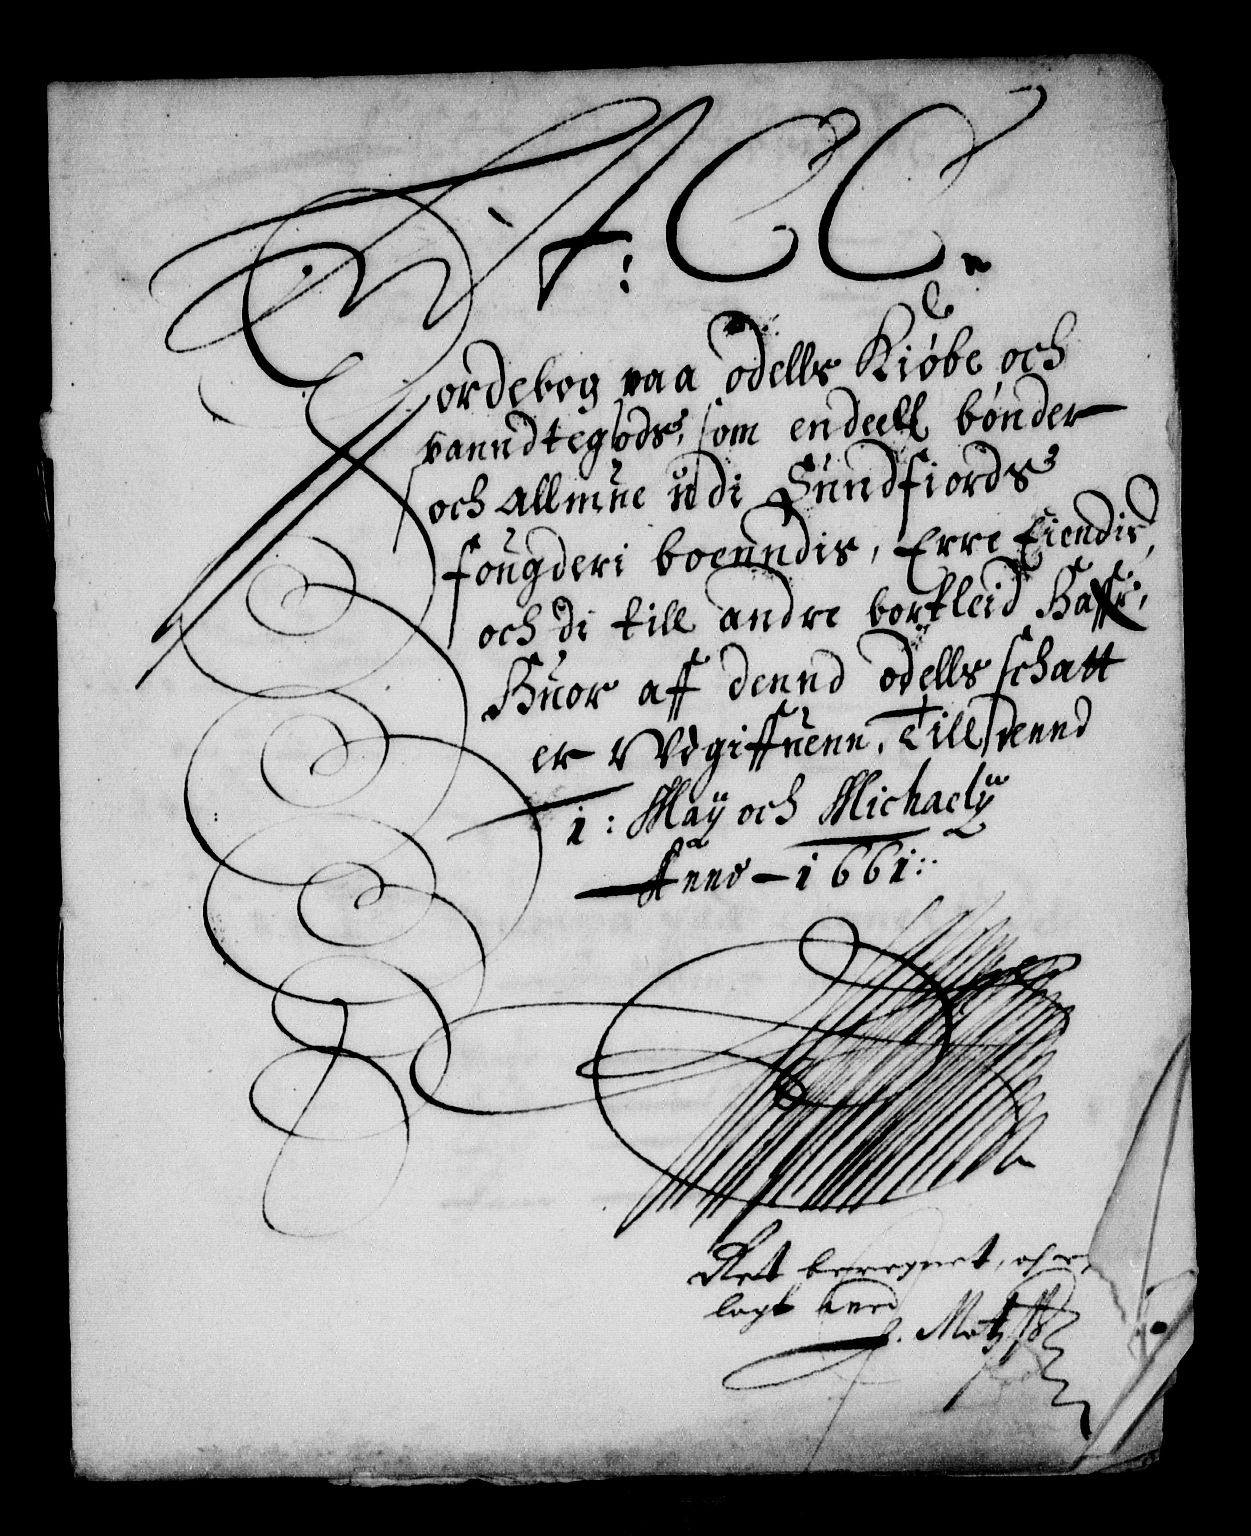 A: CC.
Jordebog paa odells Kiøbe och
panndtegods, som endeell bønder
och Allmue udi Sundfiords
fougderi boenndis, Erre Eiendis,
och di till andre bortleid Haffr,
Huor aff dennd odells schatt
er Udgiffuenn, Till dennd
1: Maÿ och Michaelÿ
Anno 1661:
Ret beregnet, och
lagt